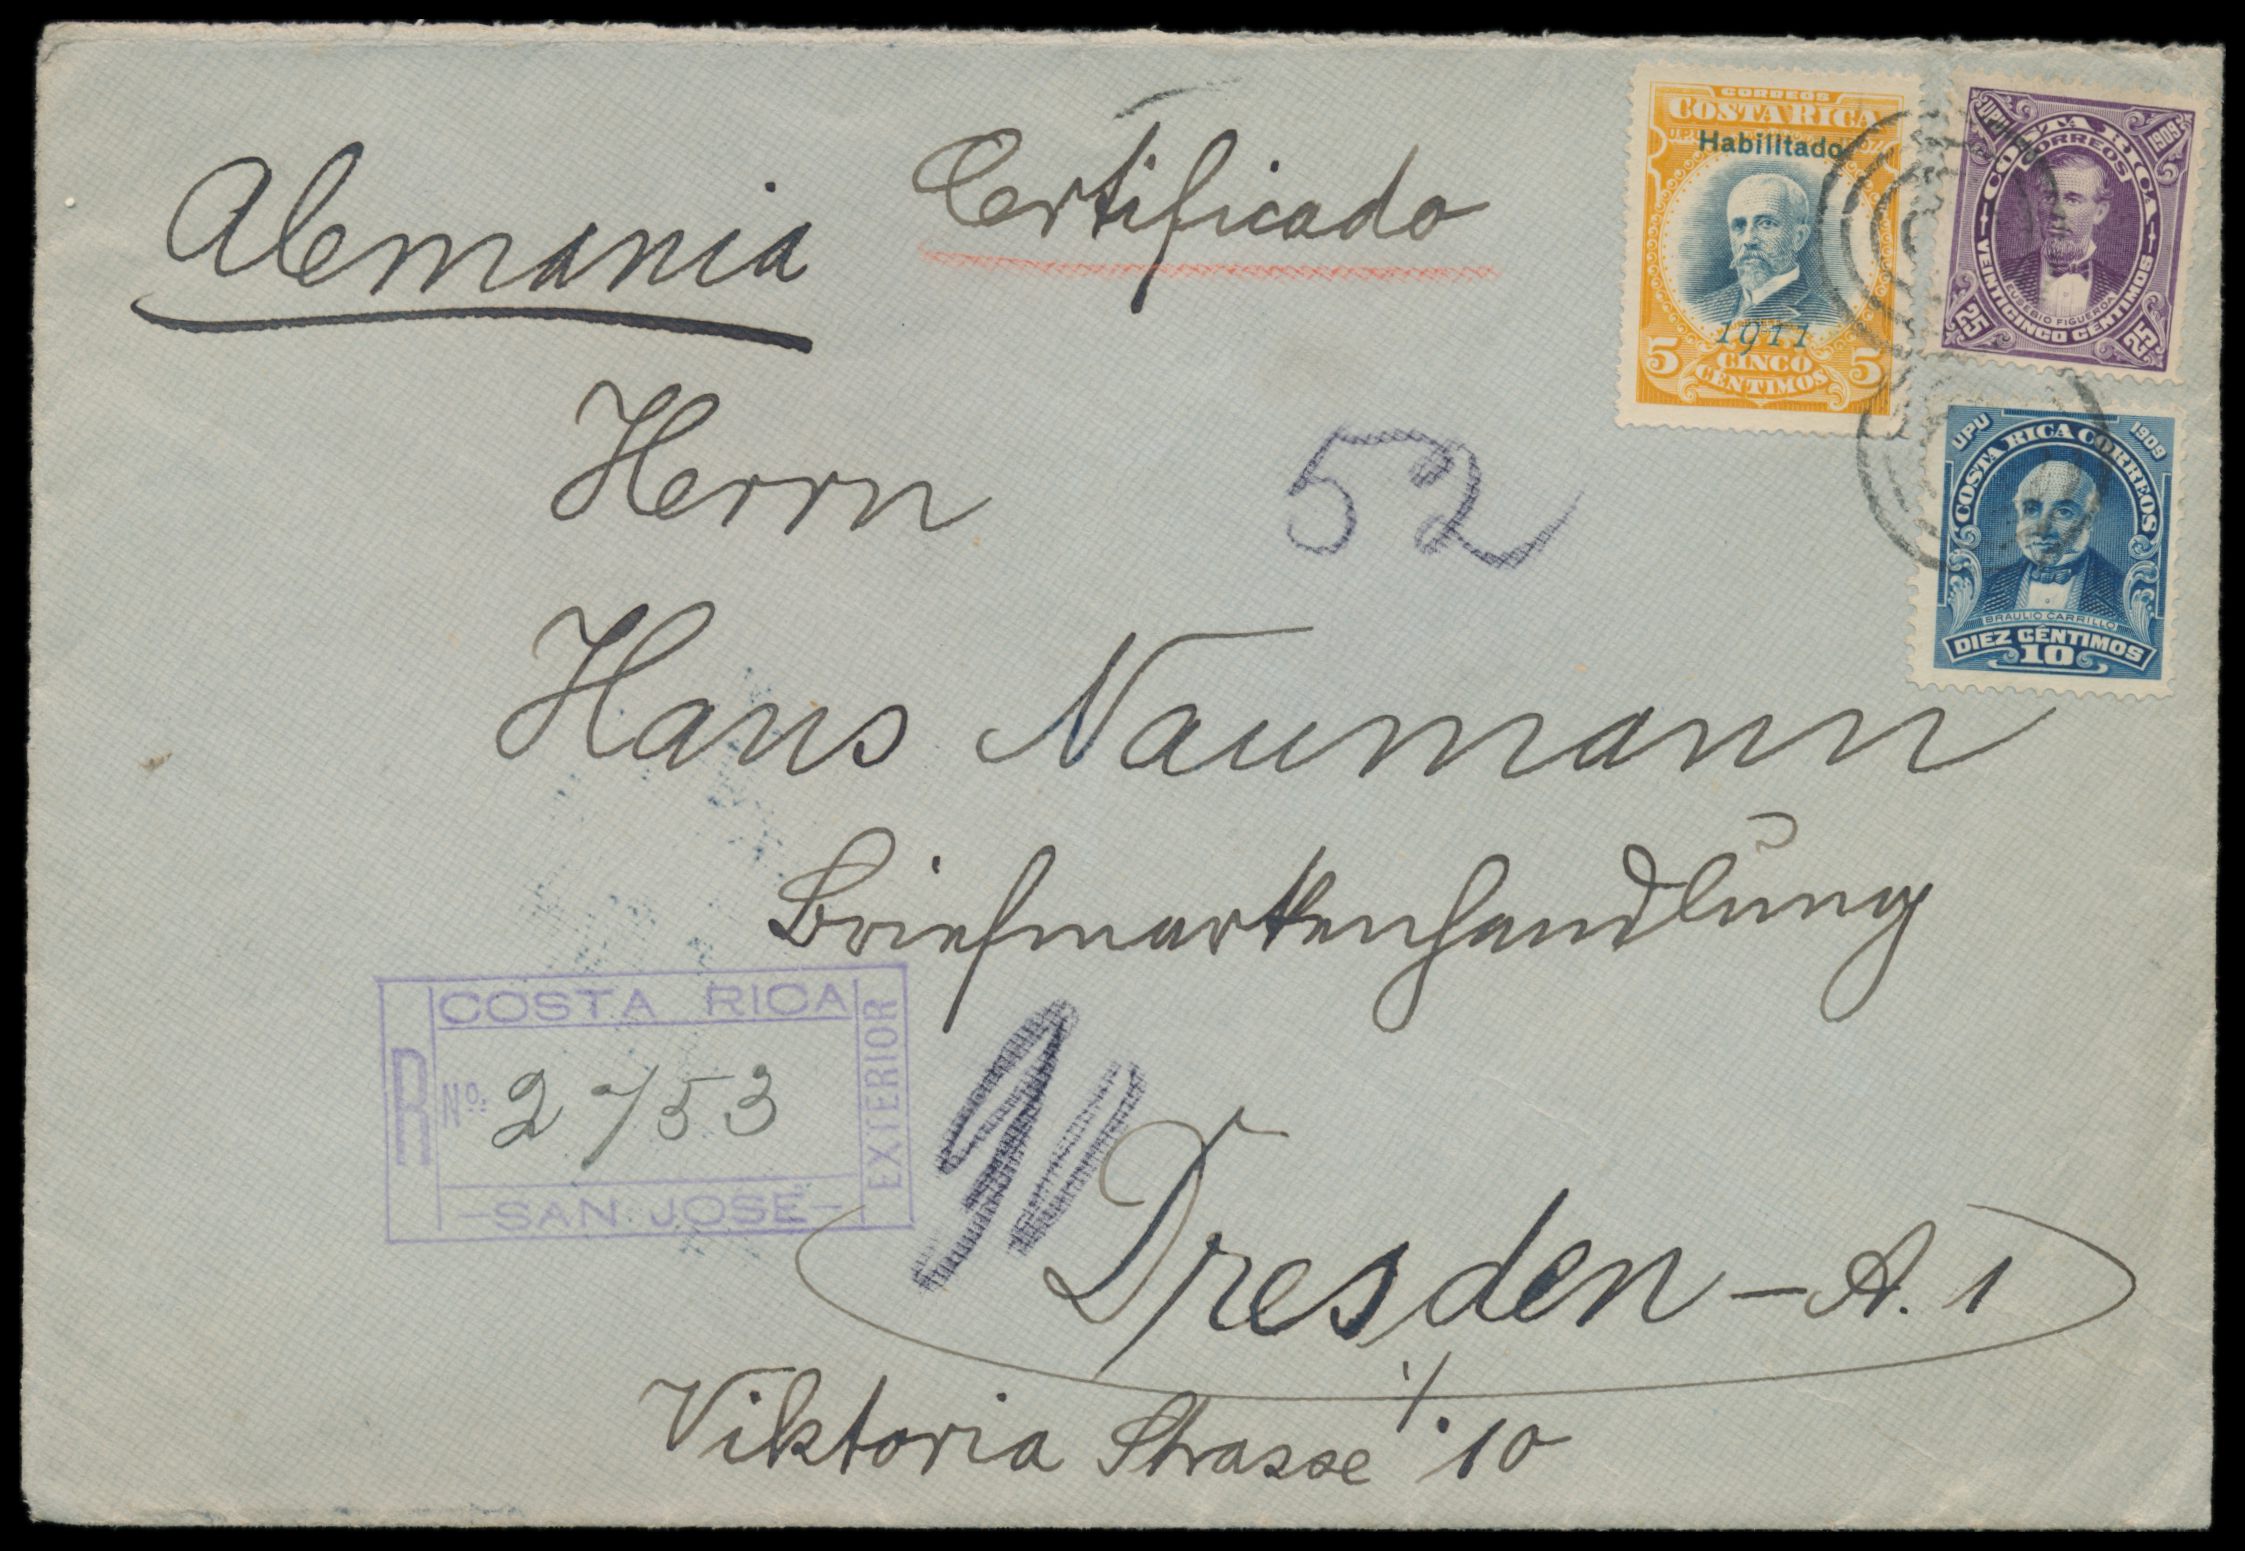 Alemania
Certificado
CORREOS
COSTA RICA
Habilitado
1911
5 CINCO 5
CÉNTIMOS
UPU 1909
COSTA RICA
CORREOS
EUSEBIO FIGUEROA
25 VEINTICINCO CENTIMOS 25
UPU 1909
COSTA RICA CORREOS
BRAULIO CARRILLO
DIEZ CÉNTIMOS
10
Herrn
52
Hans Naumann
Briefmarkenhandlung
COSTA RICA
R No. 2753 EXTERIOR
-SAN JOSÉ-
Dresden - A. 1
Viktoria Strasse 10